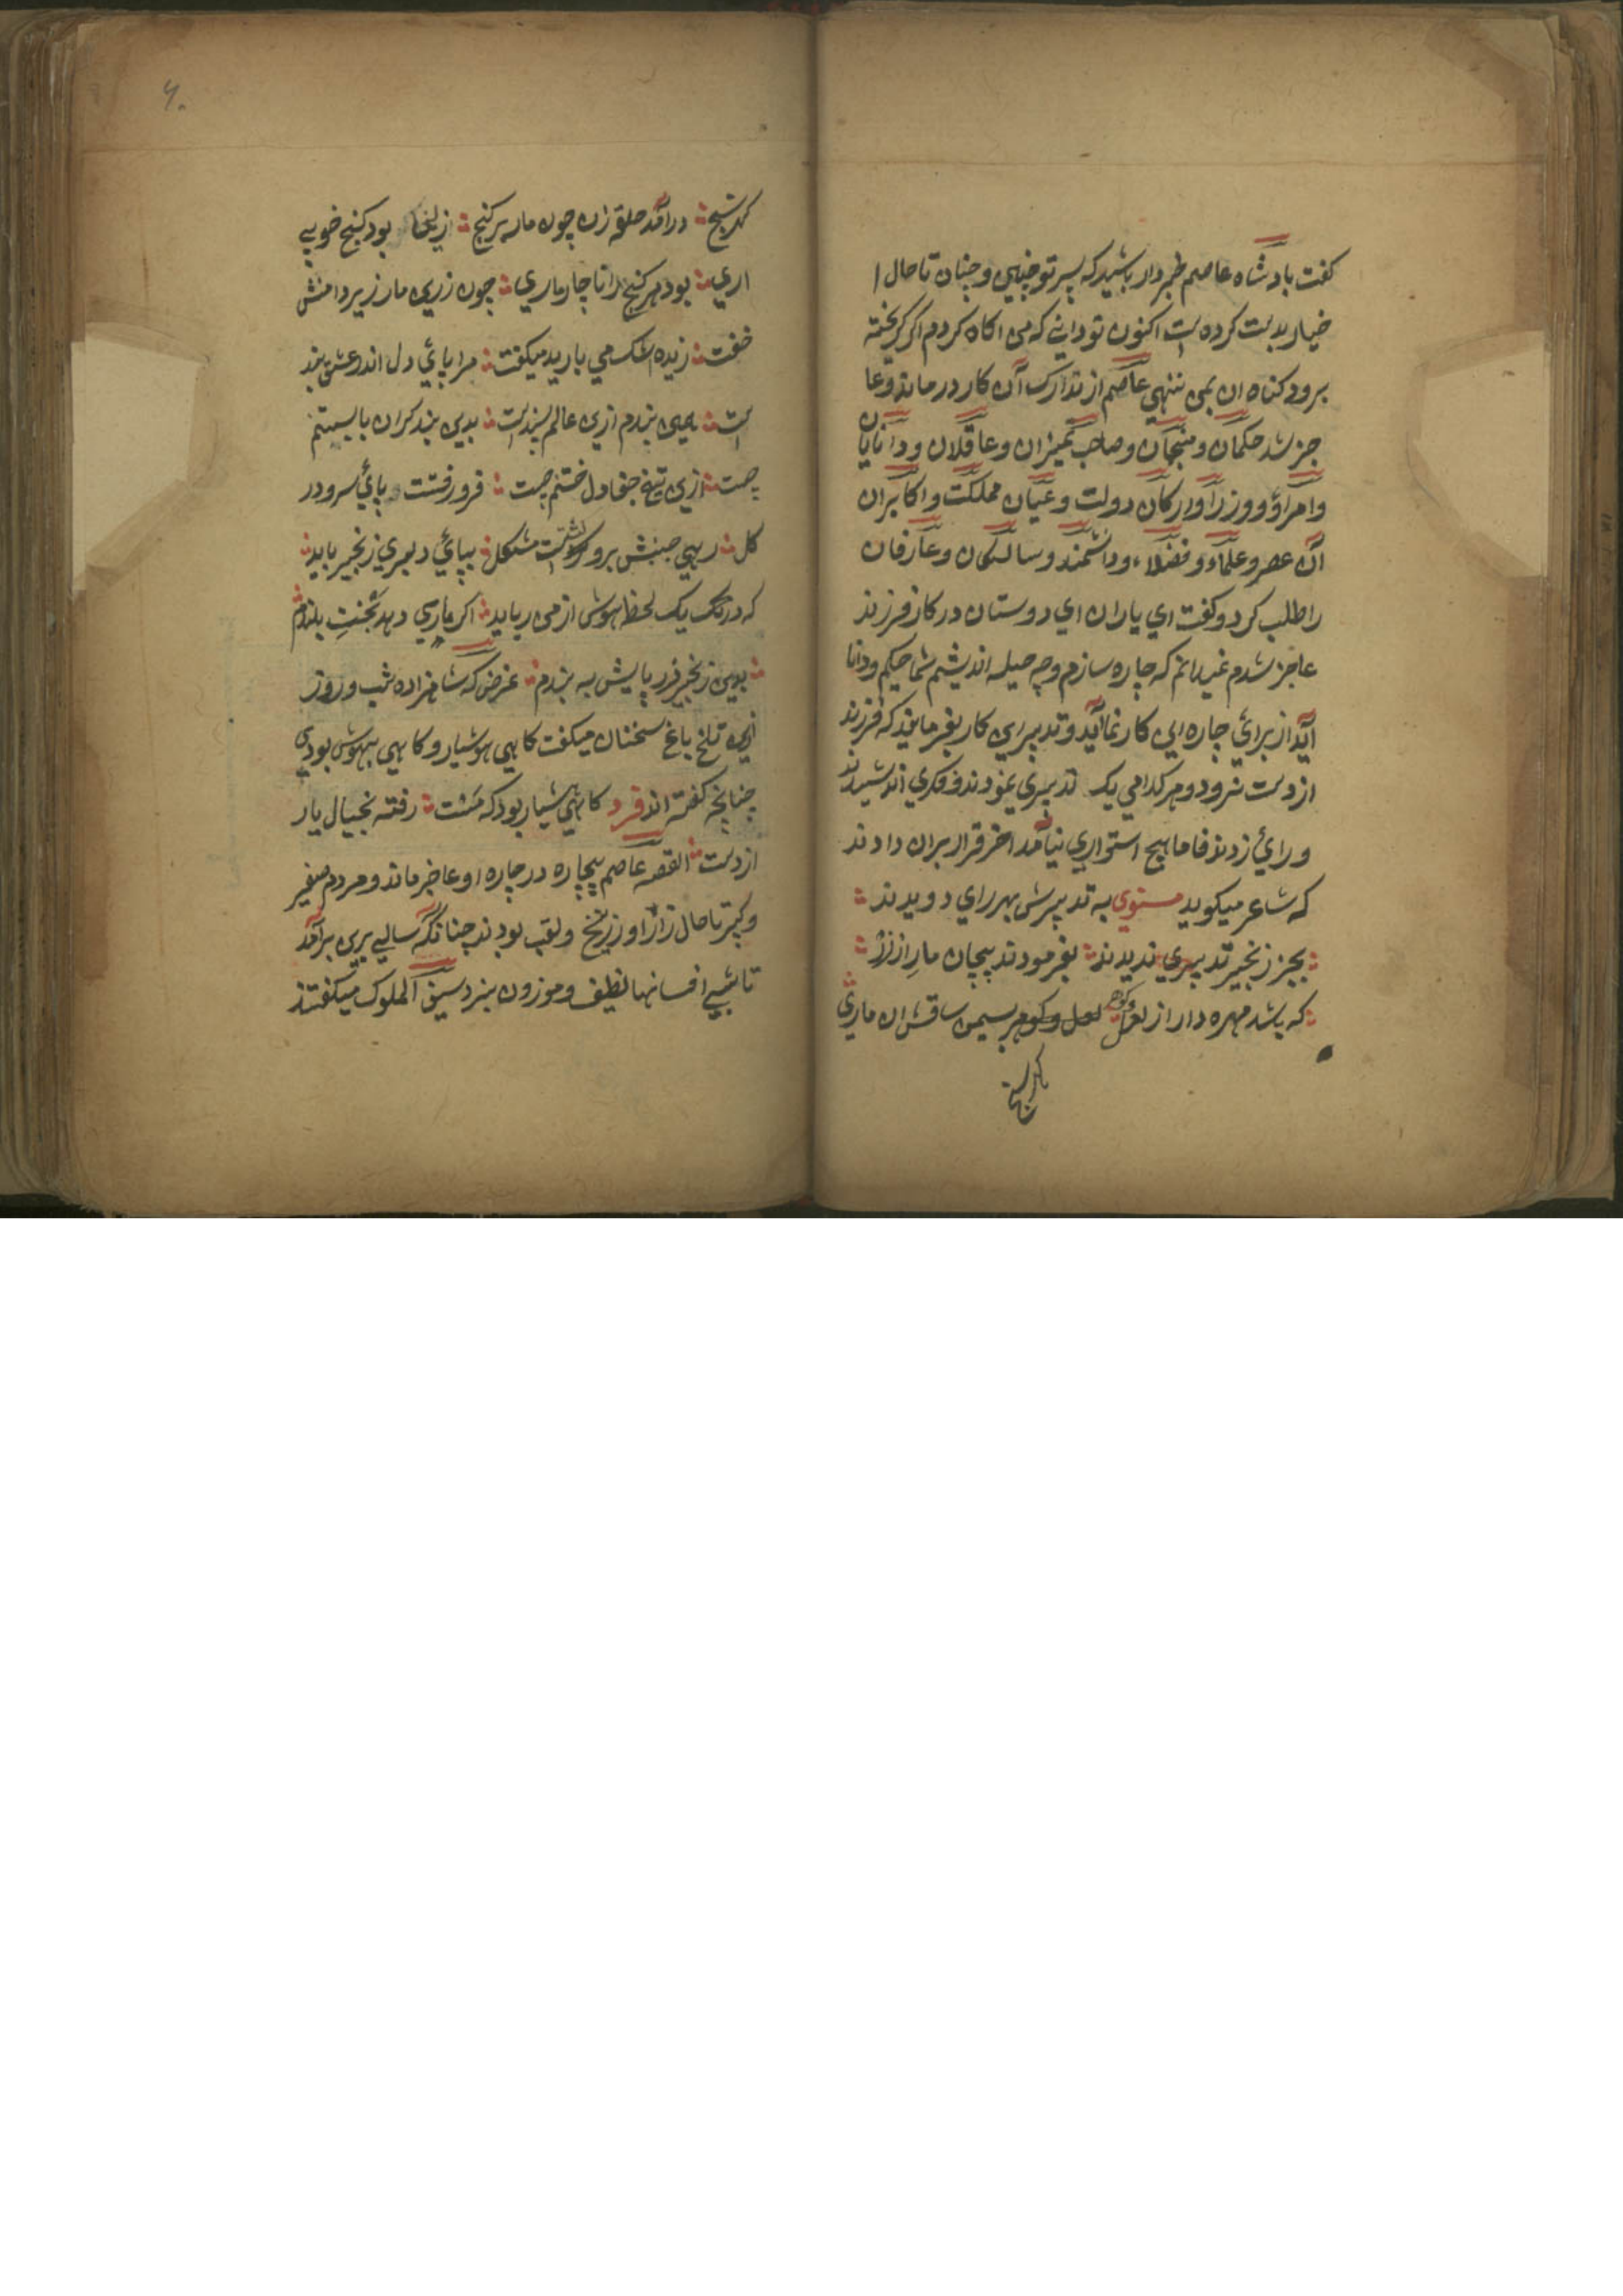 كفت بادشاه عاصم خبردار باشيد كه پسر تو چنين و چنان تا حال ا
خيار بدست كرده است اكنون تو داني كه من اكاه كردم اكر كريخته
برود كناه ان بمن ننهي عاصم از تدارك آن كار درماند و عا
جز شد حكمان و منجمان و صاحب تميزان و عاقلان و دانايان
و امراؤ و وزرا و اركان دولت و عيان مملكت و اكابران
آن عصر و علماء و فضلاء و دانشمند و سالكان و عارفان
را طلب كرد و كفت اي ياران اي دوستان در كار فرزند
عاجز شدم نميدانم كه چاره سازم و چه حيله انديشم شما حكيم و دانا
آيد از براي چاره اين كار نماآيد و تدبير اين كار بفرمايند كه فرزند
از دست نرود و هر كدامي يك تدبيري نمودند و فكري انديشيدند
و رائ زدند فاما هيچ استواري نيامد اخر قرار بران دادند
كه شاعر ميكويد مستوي به تدبيرش بهر راي دويدند
بجز زنجير تدبيري نديدند بفرمودند پيچان مار از زر
كه باشد مهره دار از لعل و كوهر سيمين ساقش ان ماري
كهر سنج
۶۰
كهر سنج درآمد حلقه زن چون مار بر كنج زليخا بود كنج خوبي
اري بود هر كنج را ناچار ماري چون زرين مار زير دامنش
خفت ز ديده اشك مي باريد ميكفت مرا پائي دل اندر عشق بند
است همين بندم ازين عالم بسندست بدين بند كران پا بستنم
چست ازين تيغ جفا دل خستنم چست فرو رفتست پائ سرو در
كل بهي جنبش برو كشتست مشكل بپائ دلبري زنجير بايد
كه در يك لحظه هوش از من ربايد اكر ياري دهد بخت بلندم
بدين زنجير زر پايش به بندم غرض كه شاهزاده شب و روز
ازين تلخ باغ سخنان ميكفت كاهي هوشيار و كاهي بيهوش بودي
چنانچه كفته اند فرد كاهي هشيار بود كه مست رفته بخيال يار
از دست القصه عاصم بيچاره در چاره او عاجز ماند و مردم صغير
و كبير تا حال زار او در رنج و تعب بودند چنانكه سالي برين برآمد
تا شبي افسانها لطيف و موزون بنزد سيف الملوك ميكفتند